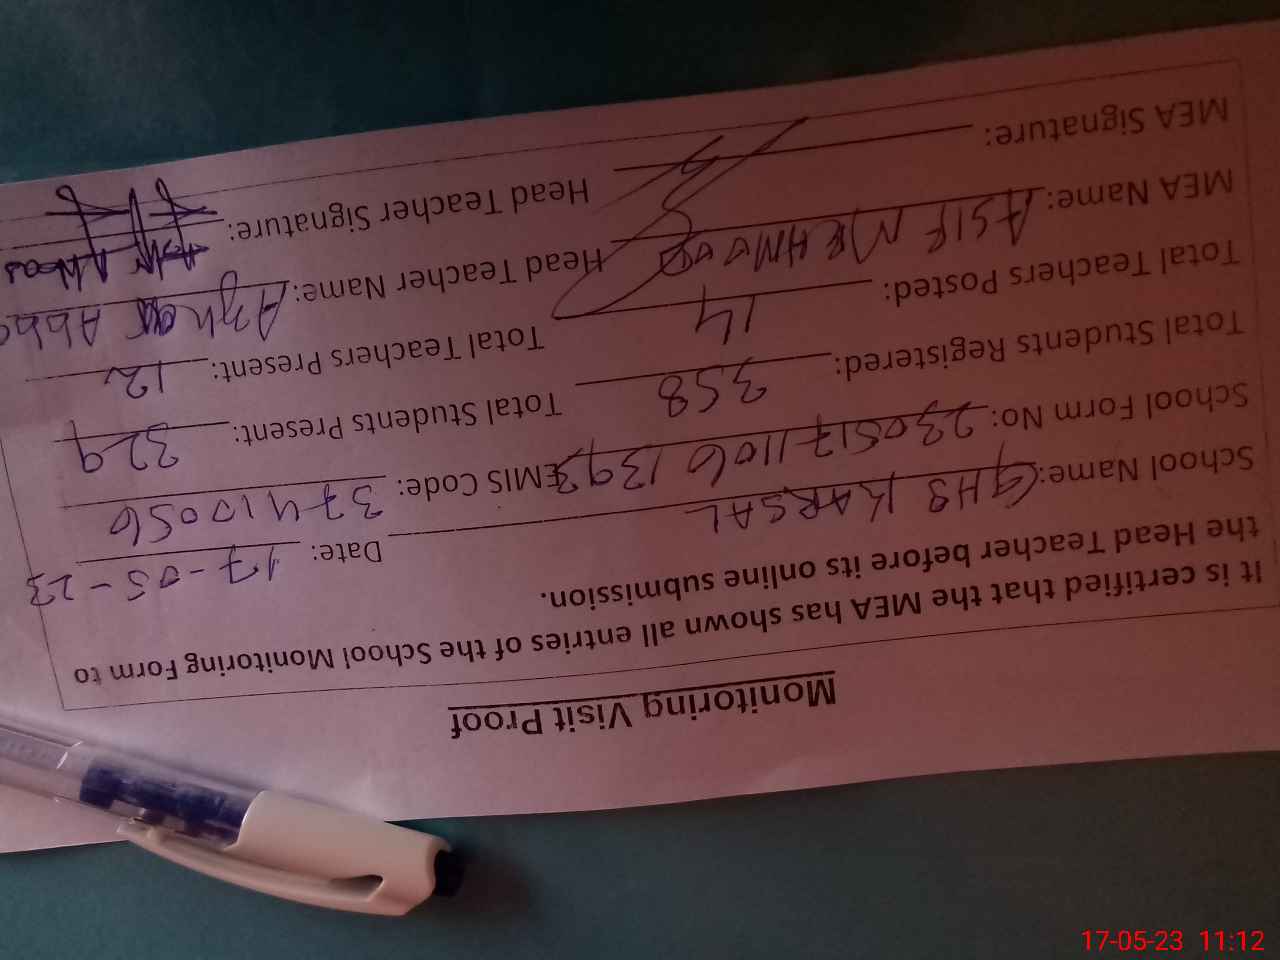 Monitoring Visit Proof
It is certified that the MEA has shown all entries of the School Monitoring Form to
the Head Teacher before its online submission.
School Name: GHS KARSAL Date: 17-05-23
School Form No: 23051711061393 EMIS Code: 37410056
Total Students Registered: 358 Total Students Present: 329
Total Teachers Posted: 14 Total Teachers Present: 12
MEA Name: ASIF MEHMOOD Head Teacher Name: Azhar Abbas
MEA Signature: Head Teacher Signature:
17-05-23 11:12